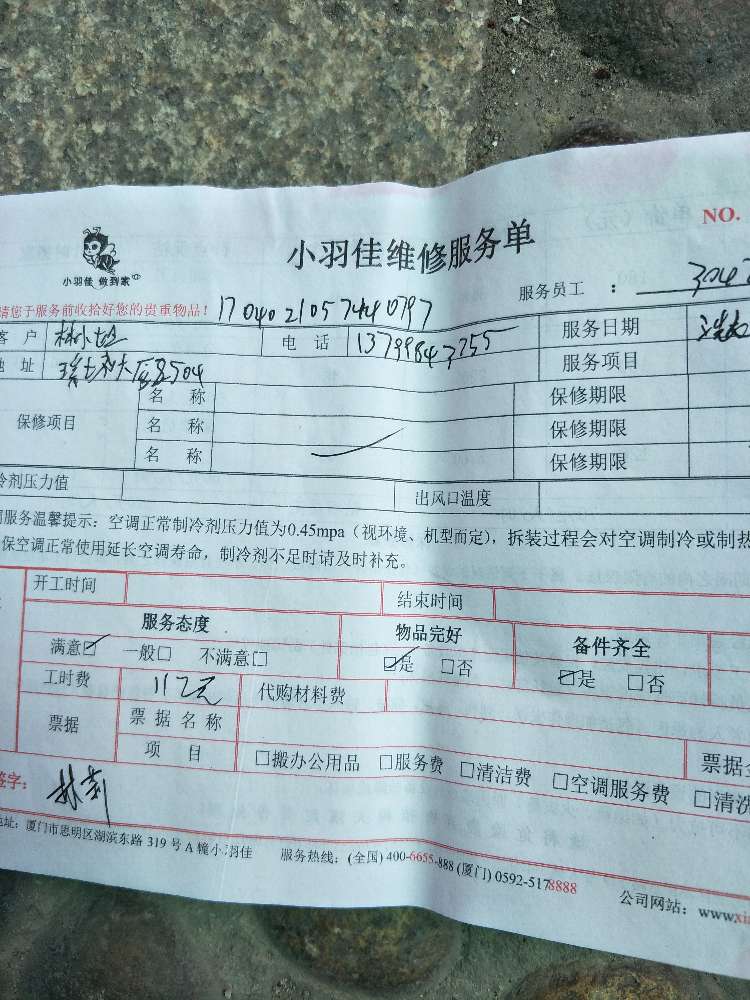 NO.
小羽佳 做到家
小羽佳维修服务单
服务员工 : 3042
请您于服务前收拾好您的贵重物品! 17040210574440797
客 户 林小姐 电 话 13799843255 服务日期
地 址 瑞士和大厦504 服务项目
保修项目 名 称 保修期限
名 称 保修期限
名 称 保修期限
冷剂压力值 出风口温度
服务温馨提示：空调正常制冷剂压力值为0.45mpa（视环境、机型而定），拆装过程会对空调制冷或制热
保空调正常使用延长空调寿命，制冷剂不足时请及时补充。
开工时间 结束时间
服务态度 物品完好 备件齐全
满意☑ 一般□ 不满意□ ☑是 □否 ☑是 □否
工时费 112元 代购材料费
票据 票据名称
项 目 □搬办公用品 □服务费 □清洁费 □空调服务费 □清洗
票据金
签字：
地址：厦门市思明区湖滨东路 319 号 A 幢小羽佳 服务热线：(全国) 400-6655-888 (厦门) 0592-5178888 公司网站：www.xia